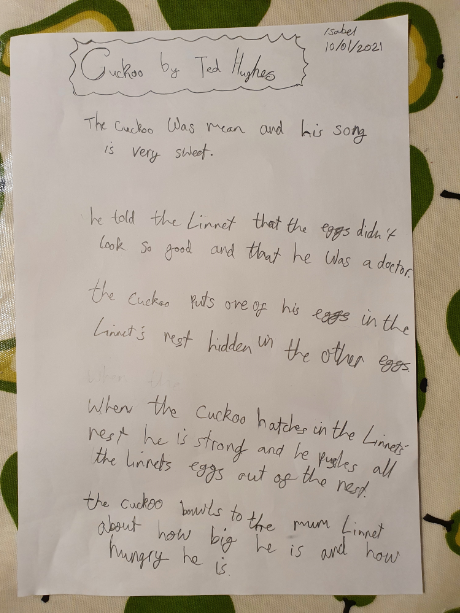 Isabel
10/01/2021
Cuckoo by Ted Hughes
The cuckoo was mean and his song
is very sweet.
he told the Linnet that the eggs didn't
look so good and that he was a doctor.
the cuckoo puts one of his eggs in the
Linnet's nest hidden in the other eggs
When the cuckoo hatches in the Linnets
nest he is strong and he pushes all
the linnets eggs out of the nest.
the cuckoo bowls to the mum Linnet
about how big he is and how
hungry he is.